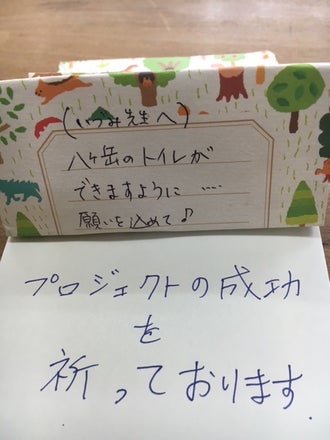 (いづみ先生へ)
八ヶ岳のトイレが
できますように……
願いを込めて♪
プロジェクトの成功
を
祈っております.